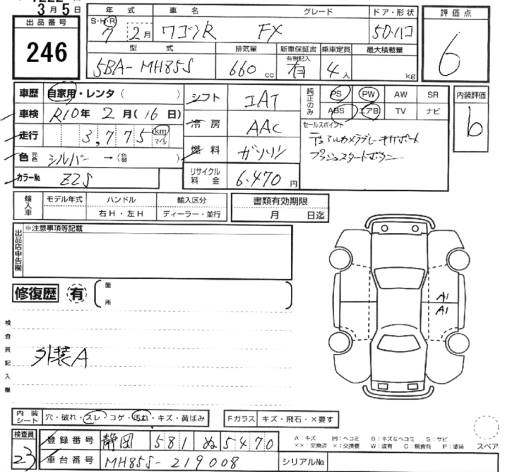 3月5日
出品番号
246
年式 車名 グレード ドア・形状
S・H・R 7年2月 ワゴンR FX 5D・ハコ
型式 排気量 新車保証書 乗車定員 最大積載量
有無記入
5BA-MH85S 660cc 有 4人 kg
評価点
6
車歴 自家用・レンタ( )
シフト IAT
純正のみ PS PW AW SR
ABS エアB TV ナビ
内装評価
b
車検 R10年2月(16日)
冷房 AAC
セールスポイント
デュアルカメラブレーキサポート
プッシュスタートボタン
走行 3,775 km マイル
色 元色 シルバー→(色替 )
燃料 ガソリン
カラーNo Z2S
リサイクル料金 6,470円
輸入車 モデル年式 ハンドル 輸入区分
年 右H・左H ディーラー・並行
書類有効期限
月 日迄
出品店申告欄
※注意事項等記載
修復歴 有
箇所
検査員記入欄
外装A
A1
A1
内装シート 穴・破れ・スレ・コゲ・汚れ・キズ・黄ばみ
Fガラス キズ・飛石・×要す
検査員
23
登録番号 静岡 581 ぬ5470
車台番号 MH85S-219008
シリアルNo.
スペア